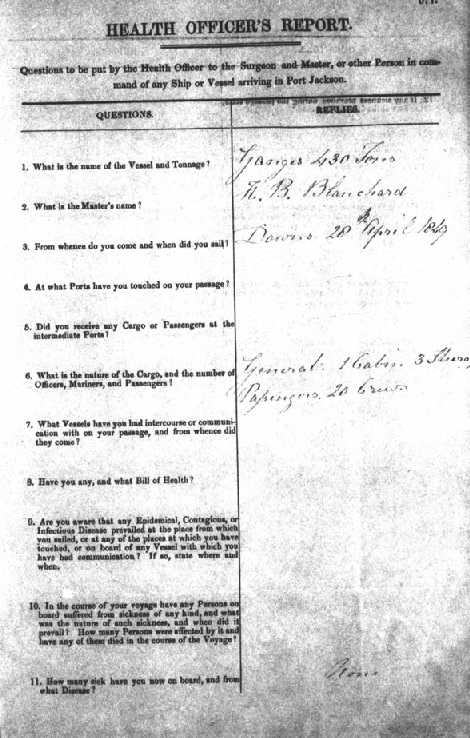 HEALTH OFFICER'S REPORT.
Questions to be put by the Health Officer to the Surgeon and Master, or other Person in com-
mand of any Ship or Vessel arriving in Port Jackson.
QUESTIONS.
REPLIES.
1. What is the name of the Vessel and Tonnage?
Ganges 430 Tons
2. What is the Master's name?
B. Blanchard
3. From whence do you come and when did you sail?
Downs 28th April 1849
4. At what Ports have you touched on your passage?
5. Did you receive any Cargo or Passengers at the
intermediate Ports?
6. What is the nature of the Cargo, and the number of
Officers, Mariners, and Passengers?
General 1 Cabin 3
Passengers 20 Crew
7. What Vessels have you had intercourse or communi-
cation with on your passage, and from whence did
they come?
8. Have you any, and what Bill of Health?
9. Are you aware that any Epidemical, Contagious, or
Infectious Disease prevailed at the place from which
you sailed, or at any of the places at which you have
touched, or on board of any Vessel with which you
have had communication? If so, state where and
when.
10. In the course of your voyage have any Persons on
board suffered from sickness of any kind, and what
was the nature of such sickness, and when did it
prevail? How many Persons were affected by it and
have any of them died in the course of the Voyage?
11. How many sick have you now on board, and from
what Disease?
None